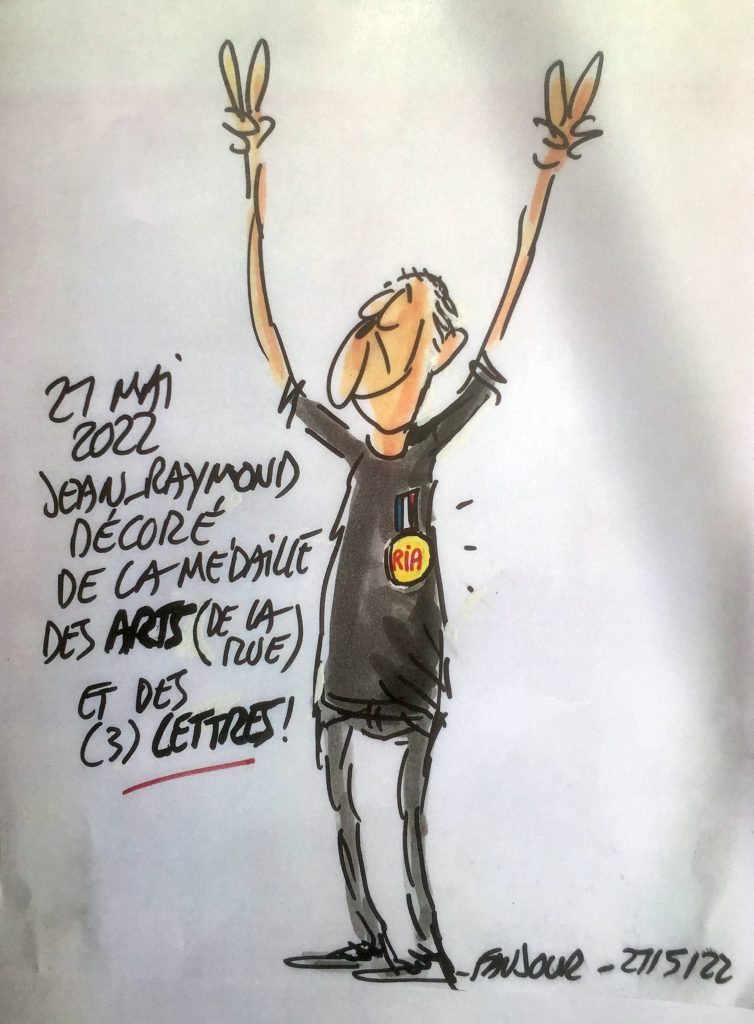 21 MAI
2022
JEAN-RAYMOND
DÉCORÉ
DE LA MÉDAILLE
DES ARTS (DE LA
RUE)
ET DES
(3) LETTRES!
RIA
-FAUJOUR-21/5/22